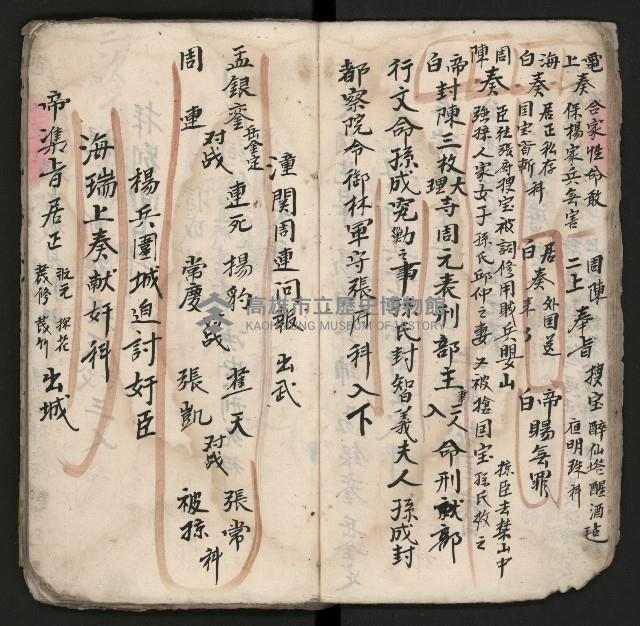 電奏 合家性命敢 周陳 奉旨 搜宝 醉仙塔醒酒毡
上 保楊家兵無害 二上 夜明珠科
海奏 居正私存 居奏 外国送 帝賜無罪
白 国宝首斬科 白 車了 白
周 臣社張府搜宝被詞修用賊兵嬰山 掠臣去禁山中
陳 奏 強搶人家女子孫氏邱仲之妻又被搶国宝孫氏救之
帝封陳三枚大理寺周元表刑部主事二人命刑部
白 入
行文命孫成究勦之事孫氏封智義夫人孫成封
都察院命御林軍守張府科入下
潼関周連回報 出武
孟銀鑾 岳金定 对战 連死 楊豹 崔天 張常
周連 常慶 会战 張凱 对战 被孫科
楊兵圍城迫討奸臣
海瑞上奏献奸科
帝準旨居正 状元 探花 懋修 茂竹 出城
高雄市立歷史博物館
KAOHSIUNG MUSEUM OF HISTORY